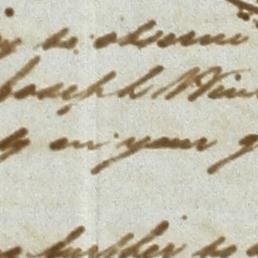 to observe
Joseph Win
on your g
further to